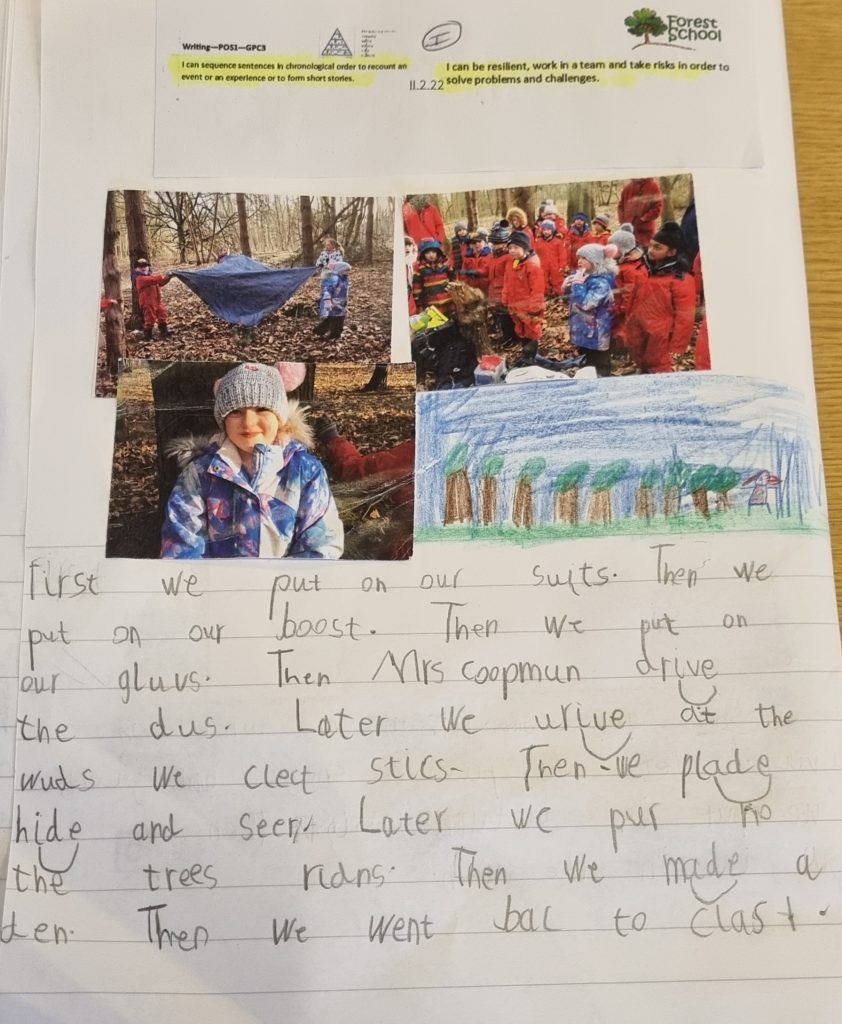 Forest
School
Writing—POS1—GPC3
I
I can sequence sentences in chronological order to recount an
event or an experience or to form short stories.
11.2.22
I can be resilient, work in a team and take risks in order to
solve problems and challenges.
first we put on our suits. Then we
put on our boost. Then we put on
our gluvs. Then Mrs coopmun drive
the dus. Later we urive at the
wuds we clect stics- Then we plade
hide and seen. Later we pur no
the trees ridns. Then we made a
den. Then we went bac to clast.